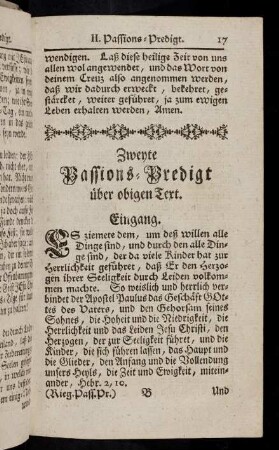 II. Passions-Predigt. 17
wendigen. Laß diese heilige Zeit von uns
allen wol angewendet, und das Wort von
deinem Creuz also angenommen werden,
daß wir dadurch erweckt, bekehret, ge-
stärcket, weiter geführet, ja zum ewigen
Leben erhalten werden, Amen.
Zweyte
Passions-Predigt
über obigen Text.
Eingang.
ES ziemete dem, um deß willen alle
Dinge sind, und durch den alle Din-
ge sind, der da viele Kinder hat zur
Herrlichkeit geführet, daß Er den Herzo-
gen ihrer Seeligkeit durch Leiden vollkom-
men machte. So weislich und herrlich ver-
bindet der Apostel Paulus das Geschäft GOt-
tes des Vaters, und den Gehorsam seines
Sohnes, die Hoheit und die Niedrigkeit, die
Herrlichkeit und das Leiden Jesu Christi, den
Herzogen, der zur Seeligkeit führet, und die
Kinder, die sich führen lassen, das Haupt und
die Glieder, den Anfang und die Vollendung
unsers Heyls, die Zeit und Ewigkeit, mitein-
ander, Hebr. 2, 10.
(Rieg. Pass. Pr.) B Und